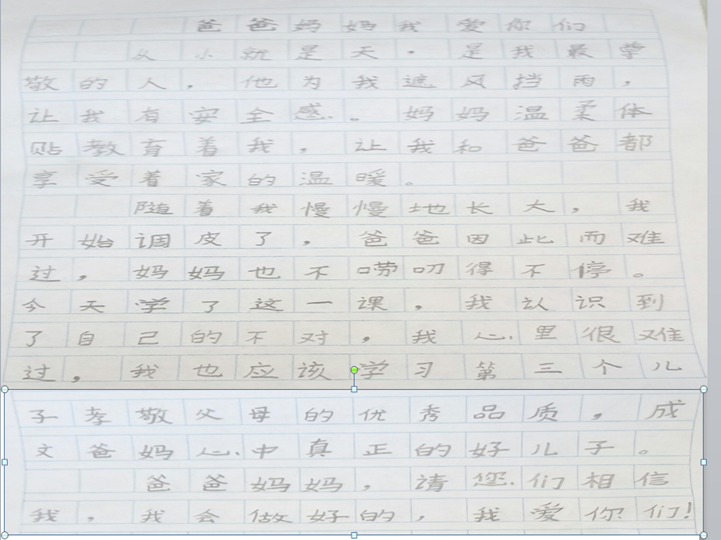 爸爸妈妈我爱你们
从小就是天。是我最学
敬的人，他为我遮风挡雨，
让我有安全感。妈妈温柔体
贴教育着我，让我和爸爸都
享受着家的温暖。
随着我慢慢地长大，我
开始调皮了，爸爸因此而难
过，妈妈也不唠叨得不停。
今天学了这一课，我认识到
了自己的不对，我心里很难
过，我也应该学习第三个儿
子孝敬父母的优秀品质，成
文爸妈心中真正的好儿子。
爸爸妈妈，请您们相信
我，我会做好的，我爱你们！